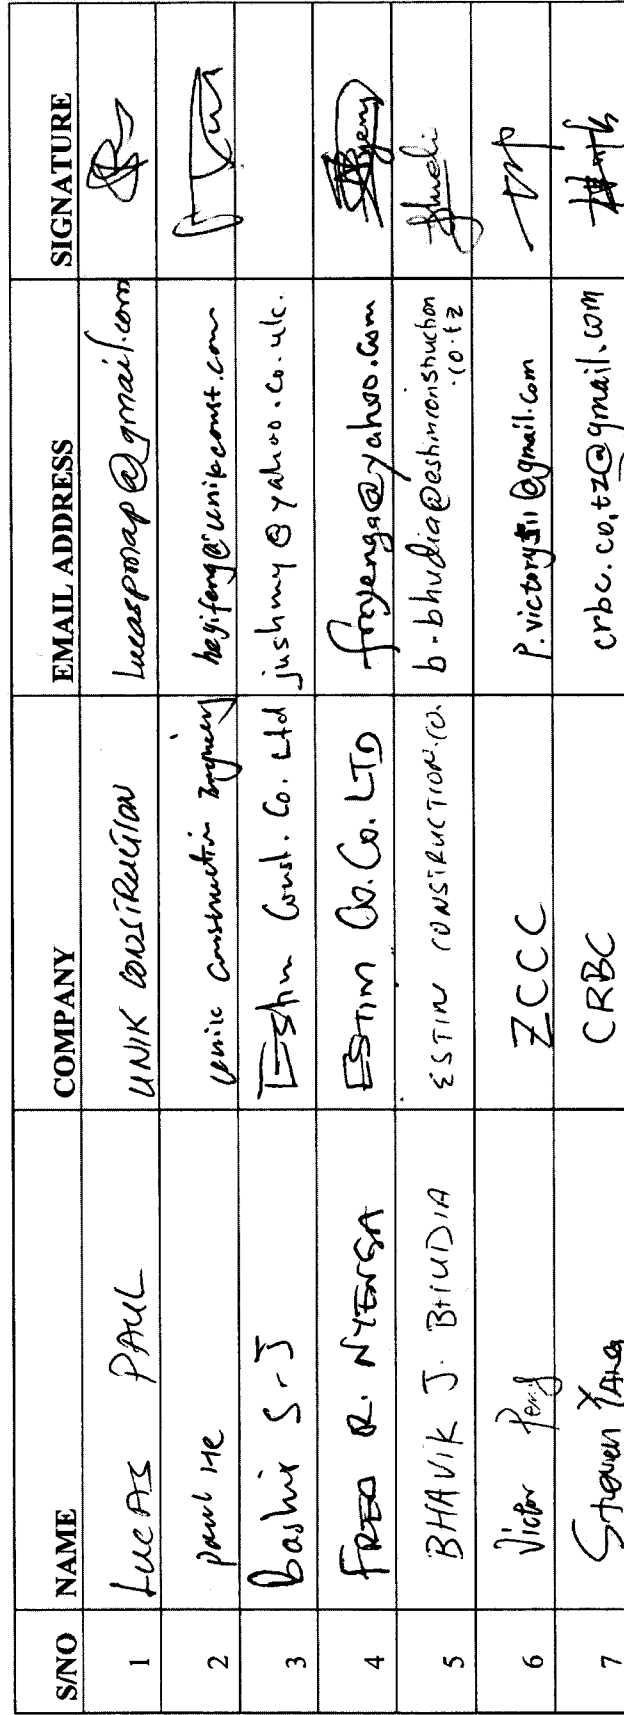 S/NO NAME COMPANY EMAIL ADDRESS SIGNATURE
1 Lucas PAUL UNIK CONSTRUCTION lucaspmap@gmail.com
2 paul He unik construction hegifeng@unikconst.com
3 Bashir S-J Estim Const. Co. Ltd jushmy@yahoo.co.uk.
4 FRED R. NYENGA ESTIM Co. Co. LTD frnyenga@yahoo.com
5 BHAVIK J. BHUDIA ESTIM CONSTRUCTION.CO. b.bhudia@estimconstruction
.co.tz
6 Victor Peng ZCCC @gmail.com
7 Steven YANG CRBC crbc.co.tz@gmail.com